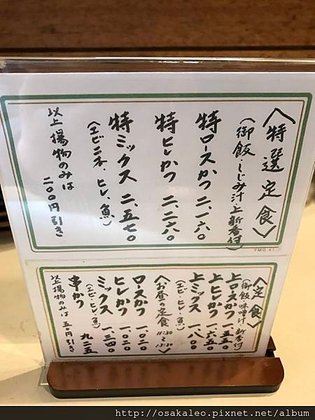 〈特選定食〉
(御飯・しじみ汁・上新香付)
特ロースかつ 二、一六〇
特ヒレかつ 二、二六〇
特ミックス 二、五七〇
(エビ二本・ヒレ・魚)
以上揚物のみは
二〇〇円引き
〈定食〉
(御飯・味噌汁・新香付)
上ロースかつ
上ヒレかつ
上ミックス
(エビ・ヒレ・魚)
〈お昼の定食〉
ロースかつ 一、〇二〇
ヒレかつ 一、〇二〇
ミックス 一、二四〇
(エビ・ヒレ・魚)
串かつ 九二五
以上揚物のみは
http://osakaleo.pixnet.net/album